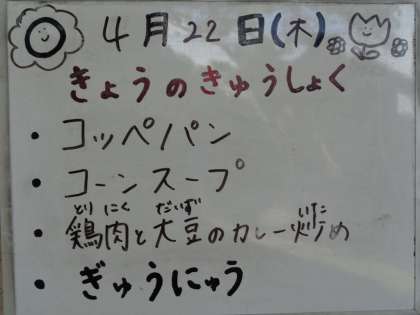 4月22日(木)
きょうのきゅうしょく
・コッペパン
・コーンスープ
とりにく だいず いた
・鶏肉と大豆のカレー炒め
・ぎゅうにゅう